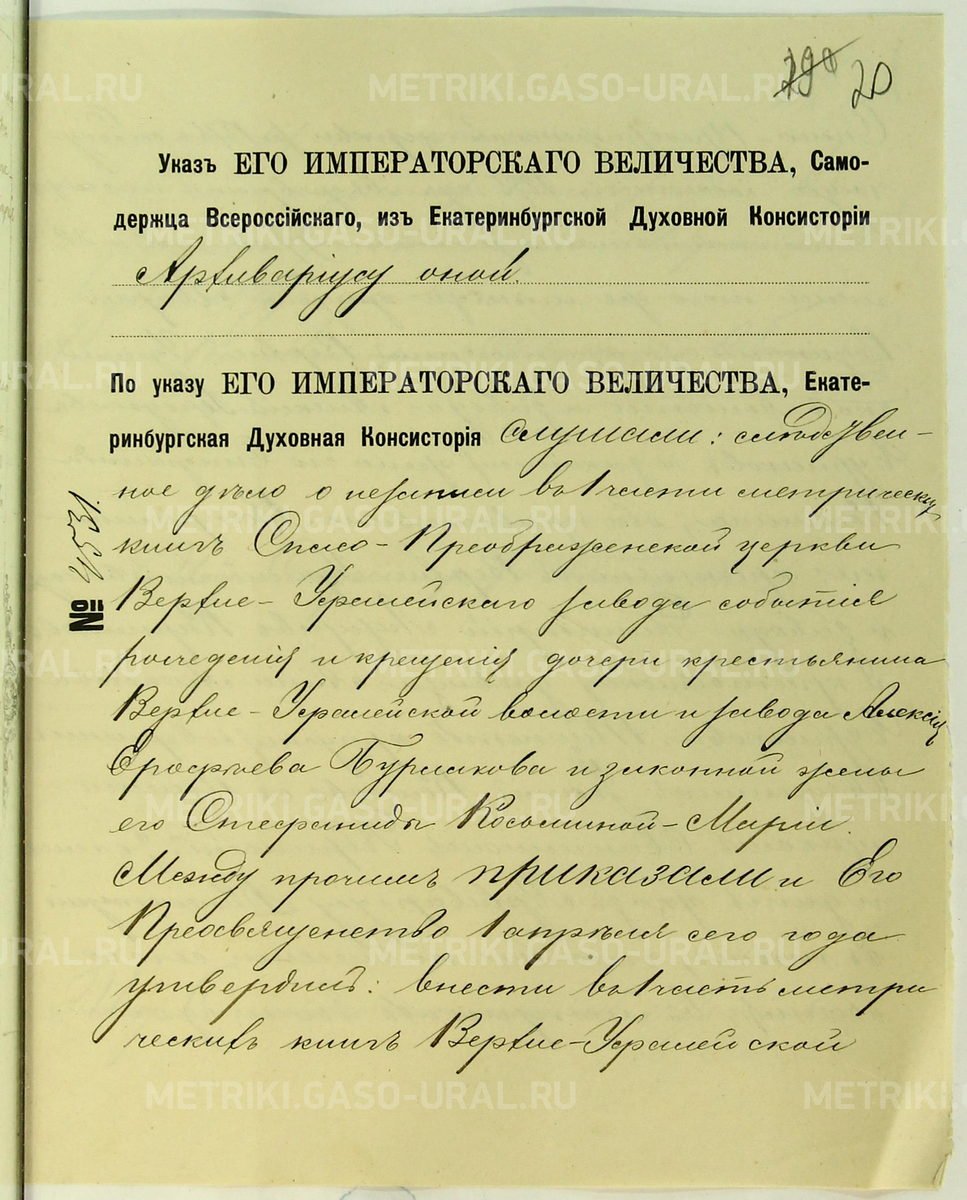 290 20
Указъ ЕГО ИМПЕРАТОРСКАГО ВЕЛИЧЕСТВА, Само-
держца Всероссійскаго, изъ Екатеринбургской Духовной Консисторіи
Архиваріусу оной.
По указу ЕГО ИМПЕРАТОРСКАГО ВЕЛИЧЕСТВА, Екате-
ринбургская Духовная Консисторія слушали: слѣдствен-
ное дѣло о незаписи въ 1 части метрическихъ
книгъ Спасо-Преображенской церкви
№ 4531.
Верхне-Уфалейскаго завода событія
рожденія и крещенія дочери крестьянина
Верхне-Уфалейской волости и завода Алексія
Ерофѣева Бурмакова и законной жены
его Стефаниды Косьминой-Маріи.
Между прочимъ приказали и Его
Преосвященство 1 апрѣля сего года
утвердилъ: внести въ 1 часть метри
ческихъ книгъ Верхне-Уфалейской
METRIKI.GASO-URAL.RU